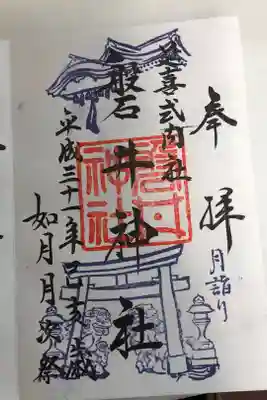 奉拝
月詣り
延喜式内社
磐井神社
平成三十一年己亥歳
如月月次祭
磐井神社